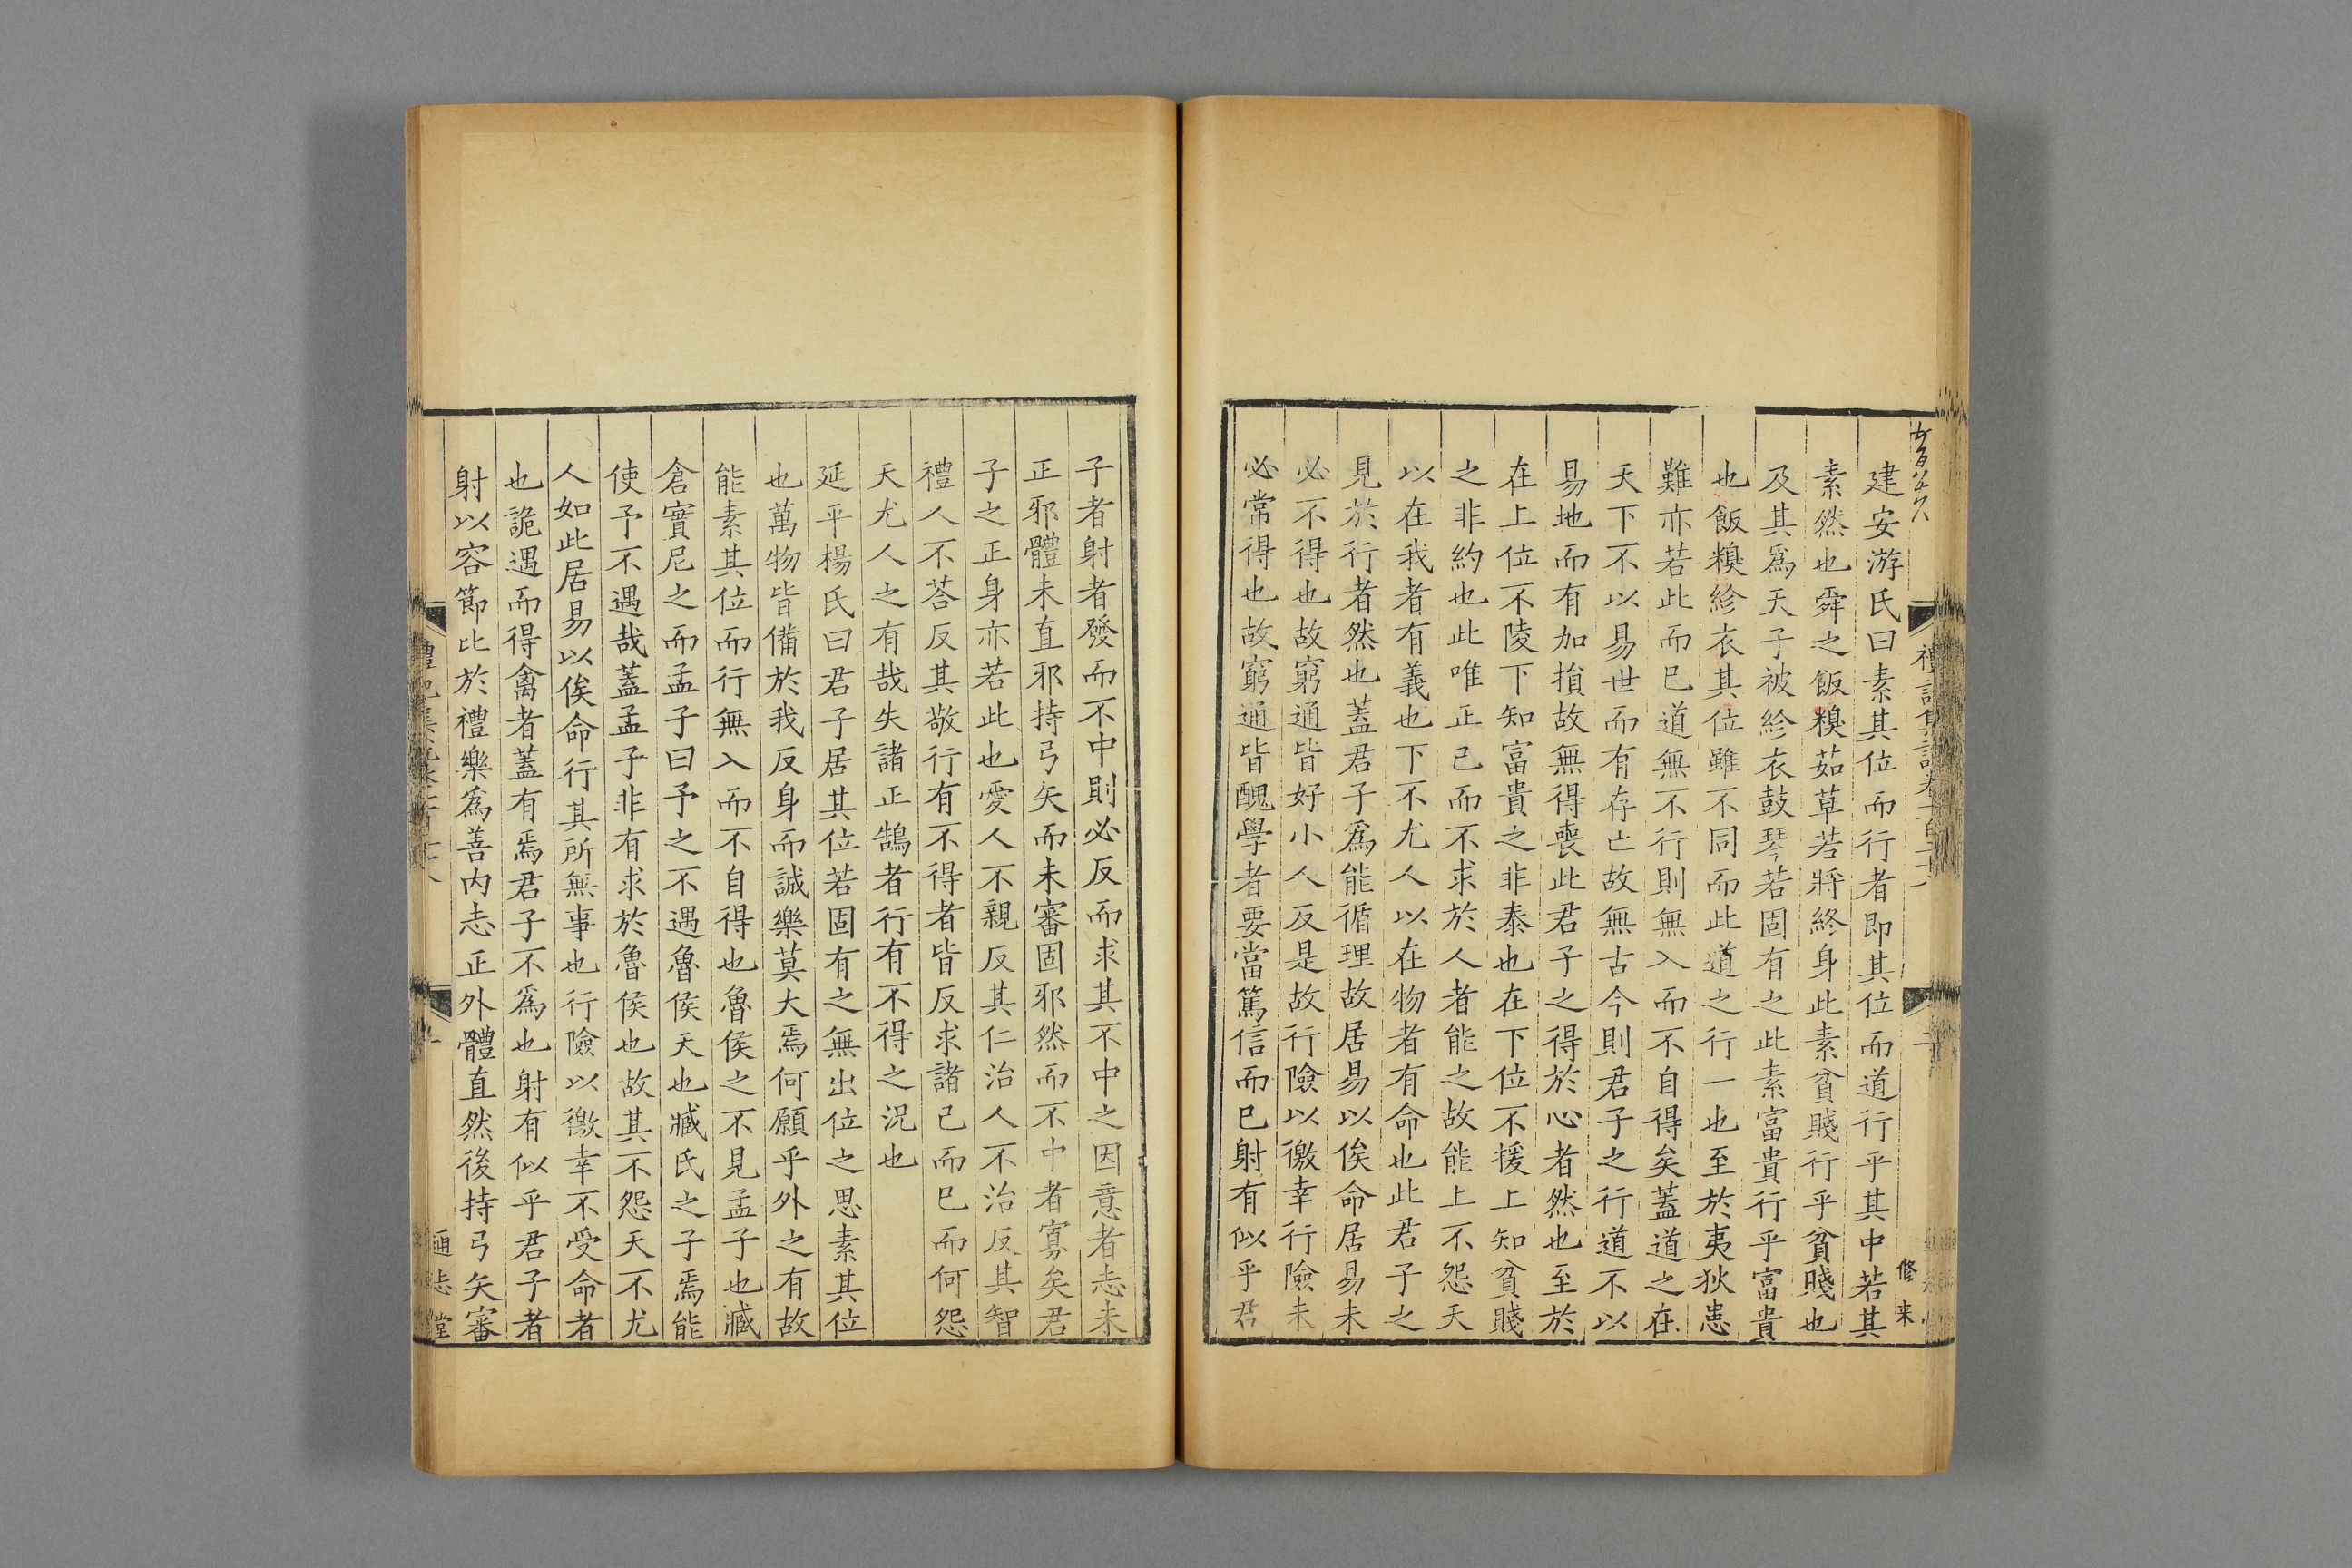 建安游氏曰素其位而行者即其位而道行乎其中若其
素然也舜之飯糗茹草若將終身此素貧賤行乎貧賤也
及其爲天子被袗衣鼓琴若固有之此素富貴行乎富貴
也飯糗袗衣其位雖不同而此道之行一也至於夷狄患
難亦若此而已道無不行則無入而不自得矣蓋道之在
天下不以易世而有存亡故無古今則君子之行道不以
易地而有加損故無得喪此君子之得於心者然也至於
在上位不陵下知富貴之非泰也在下位不援上知貧賤
之非約也此唯正己而不求於人者能之故能上不怨天
以在我者有義也下不尤人以在物者有命也此君子之
見於行者然也蓋君子爲能循理故居易以俟命居易未
必不得也故窮通皆好小人反是故行險以徼幸行險未
必常得也故窮通皆醜學者要當篤信而已射有似乎君
子者射者發而不中則必反而求其不中之因意者志未
正邪體未直邪持弓矢而未審固邪然而不中者寡矣君
子之正身亦若此也愛人不親反其仁治人不治反其智
禮人不荅反其敬行有不得者皆反求諸己而已而何怨
天尤人之有哉失諸正鵠者行有不得之況也
延平楊氏曰君子居其位若固有之無出位之思素其位
也萬物皆備於我反身而誠樂莫大焉何願乎外之有故
能素其位而行無入而不自得也魯侯之不見孟子也臧
倉實尼之而孟子曰予之不遇魯侯天也臧氏之子焉能
使予不遇哉蓋孟子非有求於魯侯也故其不怨天不尤
人如此居易以俟命行其所無事也行險以徼幸不受命者
也詭遇而得禽者蓋有焉君子不爲也射有似乎君子者
射以容節比於禮樂爲善内志正外體直然後持弓矢審
通志堂